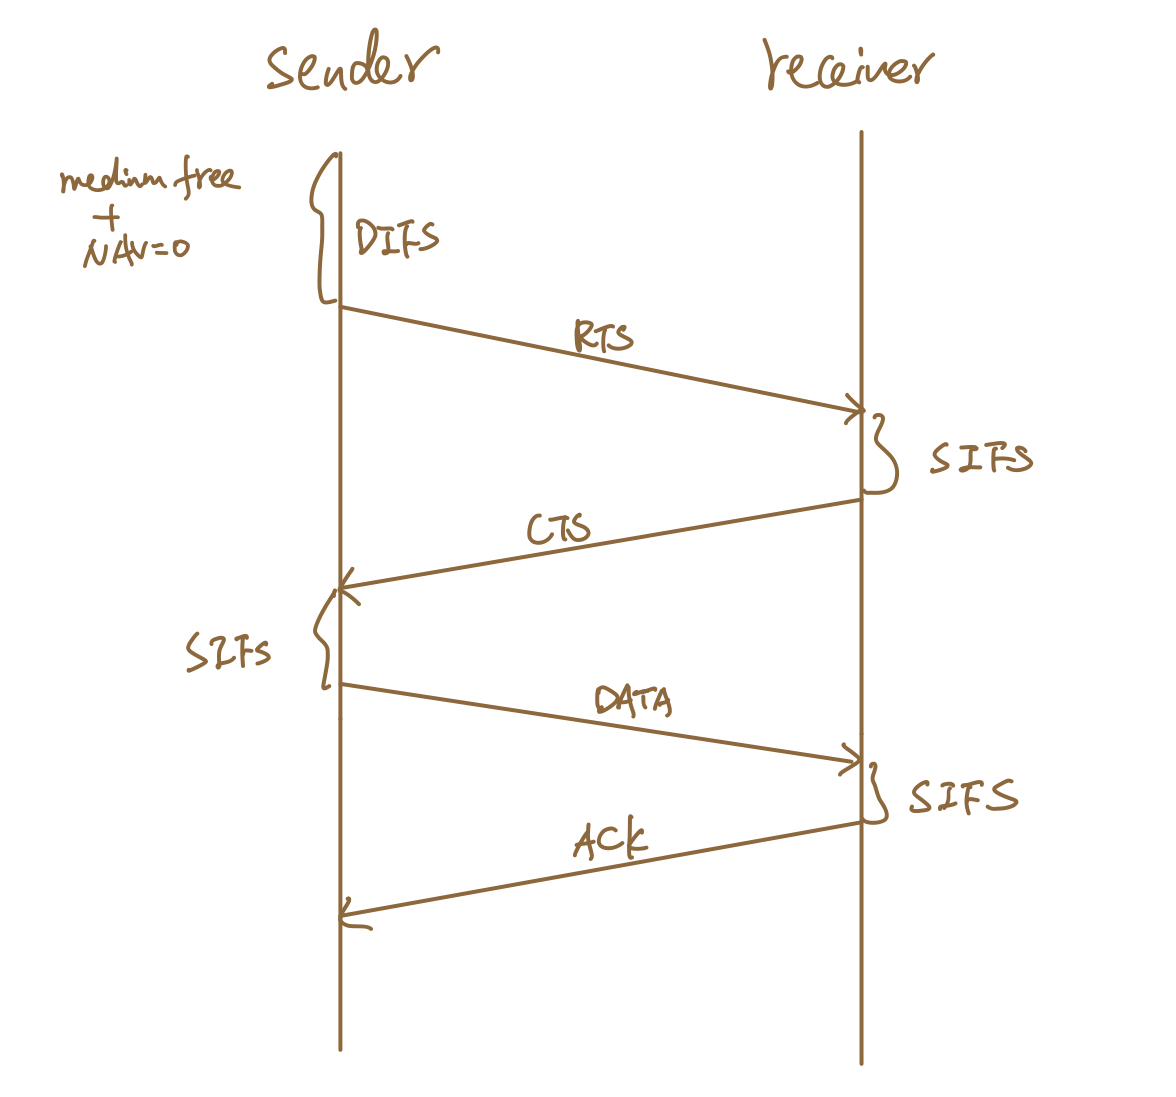 sender
receiver
medium free
+
NAV=0
DIFS
RTS
SIFS
CTS
SIFs
DATA
SIFS
ACK